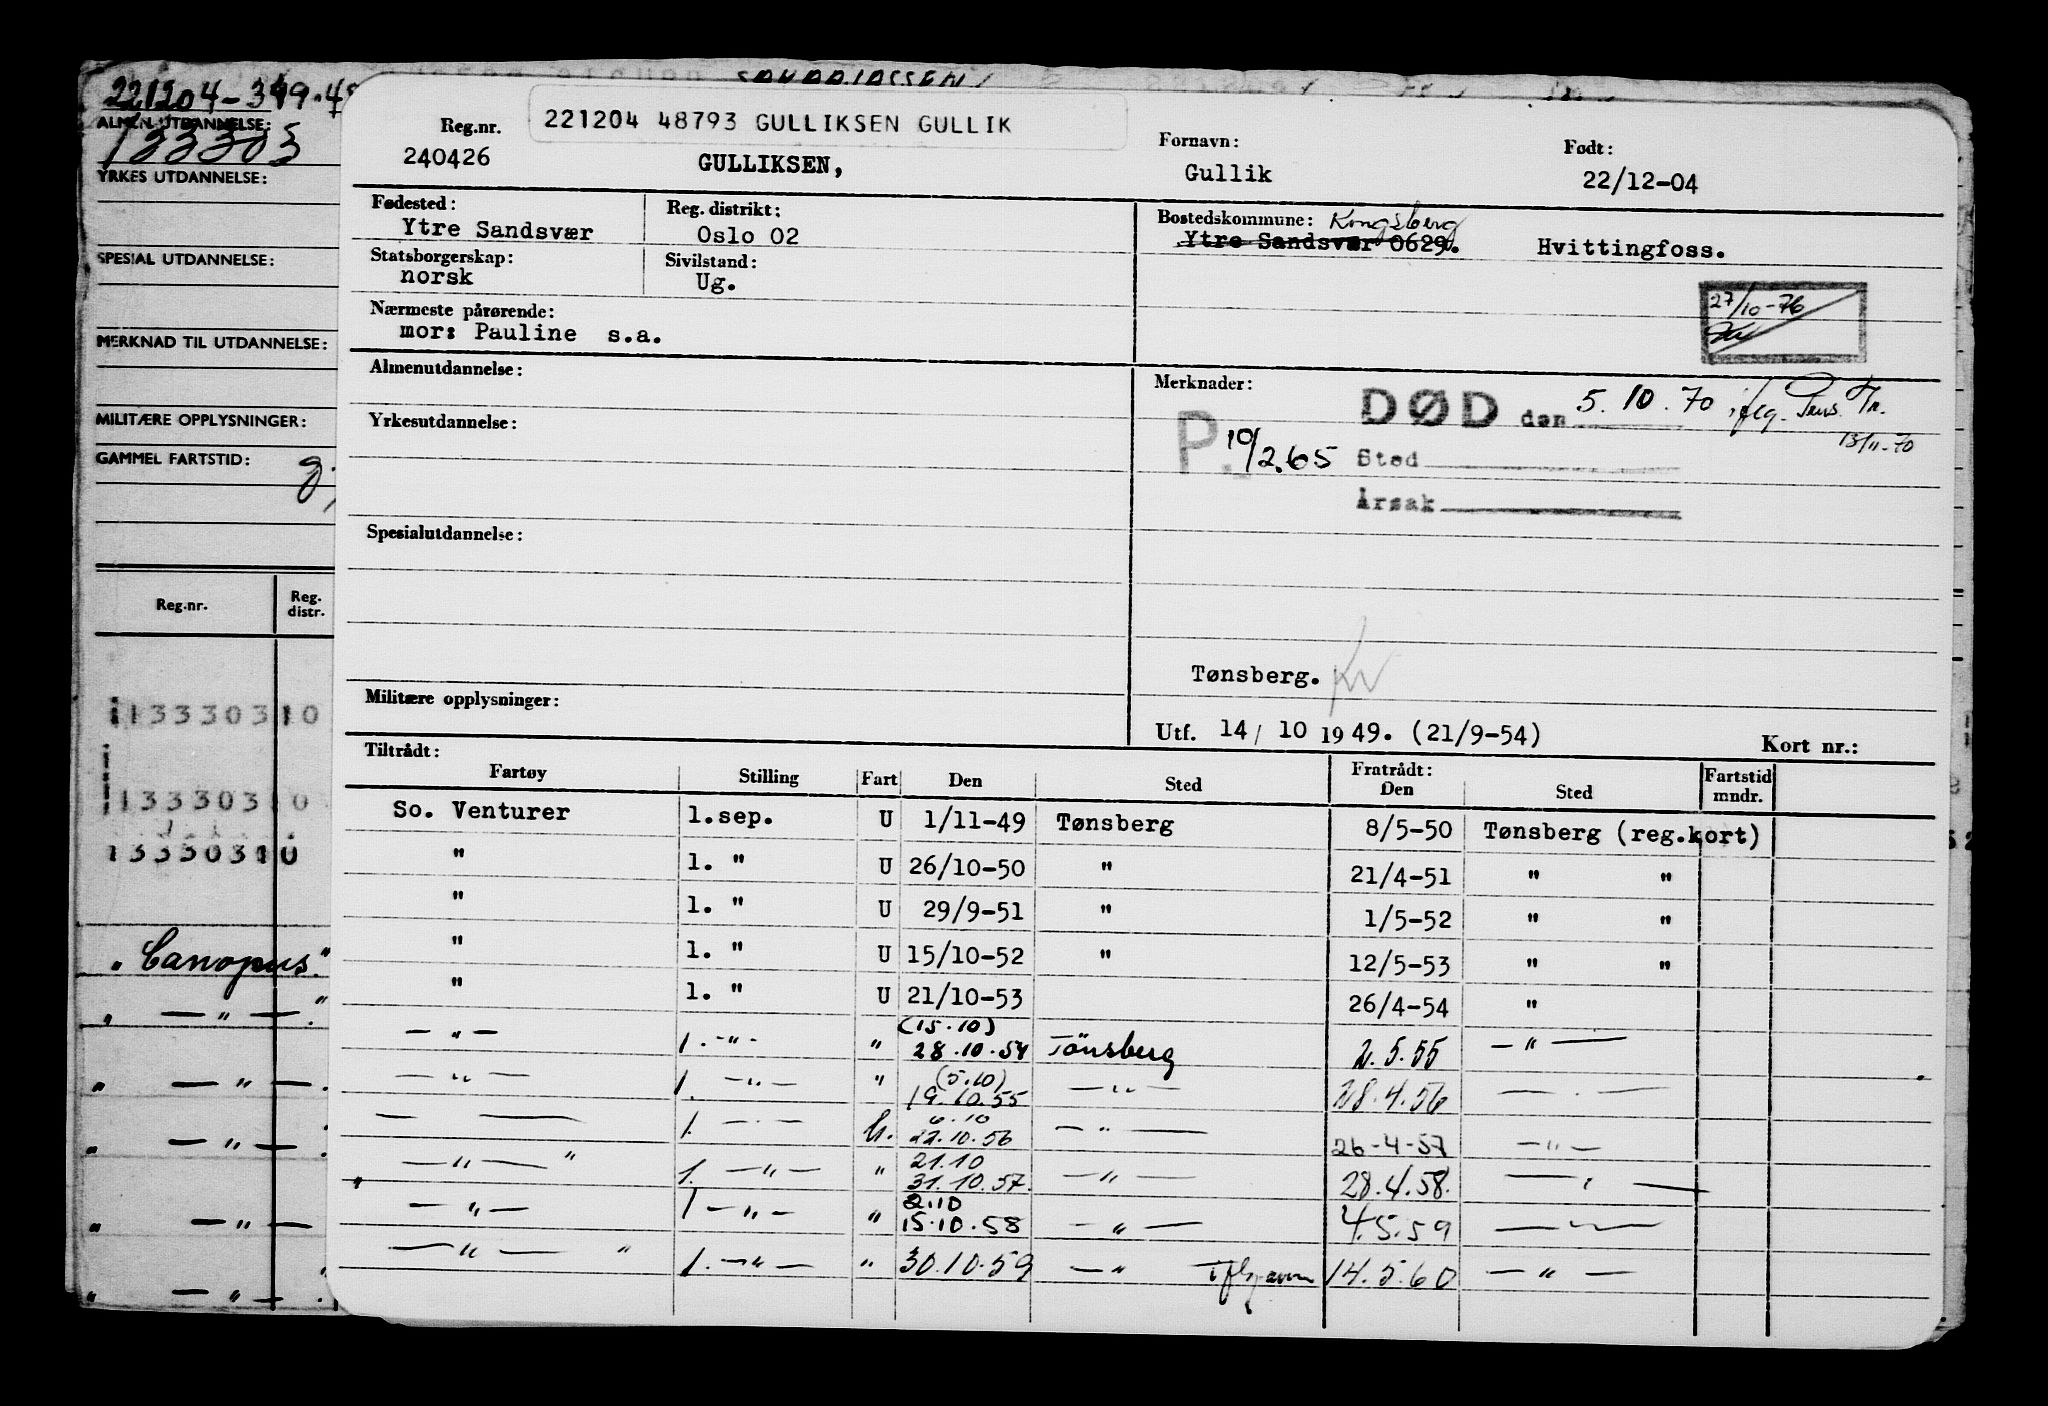 221204-349.48
133303
ALMEN UTDANNELSE:
YRKES UTDANNELSE:
SPESIAL UTDANNELSE:
MERKNAD TIL UTDANNELSE:
MILITÆRE OPPLYSNINGER:
GAMMEL FARTSTID:
Reg.nr. Reg. distr.
13330310
13330310
13330310
"Canopus."
" — " — "
" — " —
" — " —
" — " —
" — " —
221204 48793 GULLIKSEN GULLIK
Reg.nr. Fornavn: Født:
240426 GULLIKSEN, Gullik 22/12-04
Fødested: Reg. distrikt: Bostedskommune: Kongsberg
Ytre Sandsvær Oslo 02 Ytre Sandsvær 0629. Hvittingfoss.
Statsborgerskap: Sivilstand:
norsk Ug.
27/10-76
Nærmeste pårørende:
mor: Pauline s.a.
Almenutdannelse: Merknader:
DØD den 5.10.70 iflg. Pens. Tr.
13/11-70
Yrkesutdannelse:
P. 10/2.65 Sted
Årsak
Spesialutdannelse:
Tønsberg. KW
Militære opplysninger:
Utf. 14/ 10 1949. (21/9-54) Kort nr.:
Tiltrådt: Fratrådt:
Fartøy Stilling Fart Den Sted Den Sted Fartstid mndr.
So. Venturer 1.sep. U 1/11-49 Tønsberg 8/5-50 Tønsberg (reg.kort)
" 1. " U 26/10-50 " 21/4-51 " "
" 1. " U 29/9-51 " 1/5-52 " "
" 1. " U 15/10-52 " 12/5-53 " "
" 1. " U 21/10-53 26/4-54 "
(15.10)
— " — 1. -"- " 28.10.54 Tönsberg 2.5.55 — " —
(5.10)
— " — 1. — " — " 19.10.55 — " — 28.4.56 — . —
6.10
— — 1. — . — U. 22.10.56 — " — 26-4-57 — " —
21.10
— " — " 1. — " — " 31.10.57. — " — 28.4.58. — " —
2.10
— " — 1 — " — " 15.10.58 — " — 4.5.59 — " —
— " — " 1. — " — " 30.10.59 — " 14.5.60 — " —